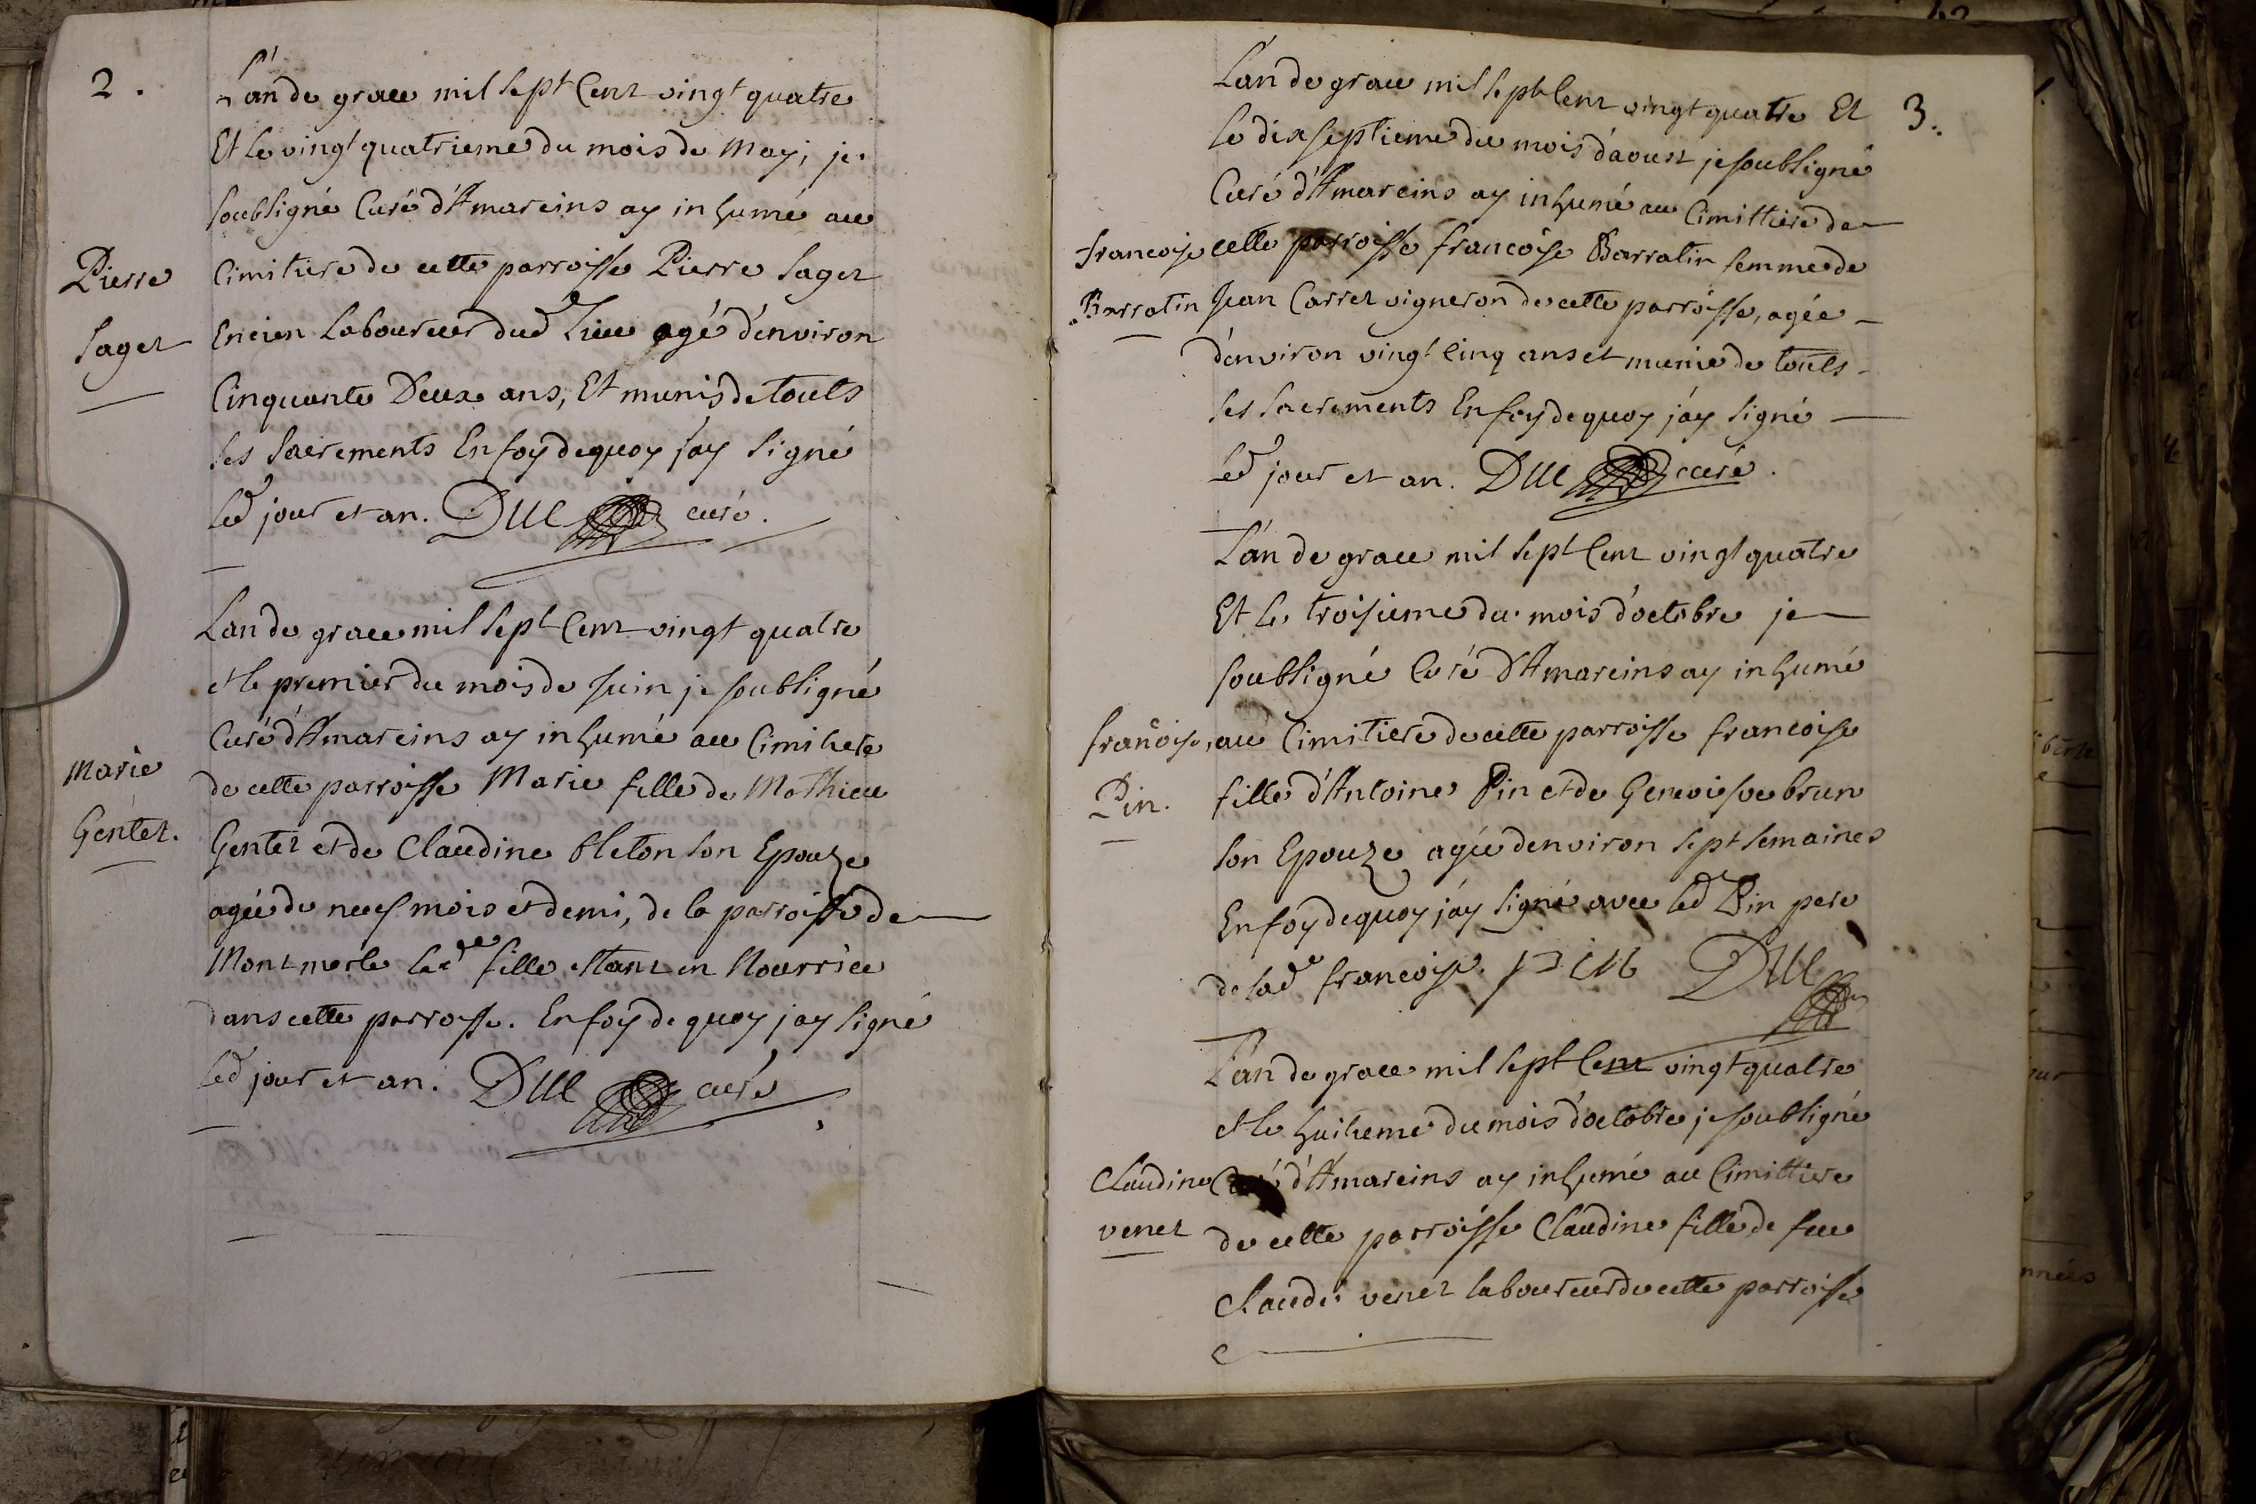 2.
L'an de grace mil sept Cent vingt quatre
Et le vingt quatrieme du mois de May, je
soubsigné Curé d'Amareins ay inhumé au
Pierre Cimitiere de cette parroisse Pierre Saget
Saget Encien Laboureur dud Lieu agé d'environ
Cinquante Deux ans, Et munis de touts
les sacrements En foy de quoy j'ay signé
led jour et an. DUC curé.
L'an de grace mil sept Cent vingt quatre
et le premier du mois de Juin je soubsigné
Curé d'Amareins ay inhumé au Cimitiere
Marie de cette parroisse Marie fille de Mathieu
Gentet. Gentet et de Claudine bleton son Epouze
agée de neuf mois et demi, de la parroisse de
Montmerle lad fille estant en Nourrice
dans cette parroisse. En foy de quoy j'ay signé
led jour et an. DUC curé
3.
L'an de grace mil sept Cent vingt quatre Et
le dix septieme du mois d'aoust je soubsigné
Curé d'Amareins ay inhumé au Cimittiere de
francoise cette parroisse francoise Barratin femme de
Barratin Jean Carret vigneron de cette parroisse, agée
d'environ vingt Cinq ans et munie de touts
les sacrements En foy de quoy j'ay signé
led jour et an. DUC curé.
L'an de grace mil sept Cent vingt quatre
Et le troisieme du mois d'octobre je
soubsigné Curé d'Amareins ay inhumé
francoise au Cimitiere de cette parroisse francoise
Pin. fille d'Antoine Pin et de Genevieve brun
son Epouze agée d'environ sept semaines
En foy de quoy j'ay signé avec led Pin pere
de lade francoise. PIN DUC
L'an de grace mil sept Cent vingt quatre
et le huitieme du mois d'octobre je soubsigné
Claudine Curé d'Amareins ay inhumé au Cimittiere
venet de cette parroisse Claudine fille de feu
Claude venet laboureur de cette parroisse